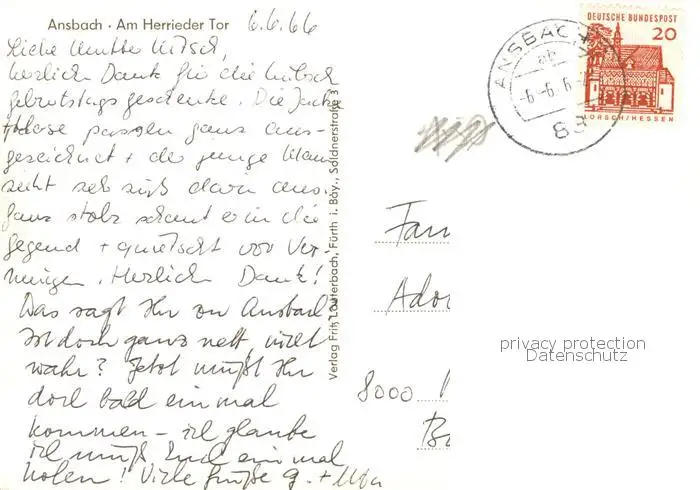 Ansbach · Am Herrieder Tor
6.6.66
Liebe Mutter Nitsch,
herzlichen Dank für die hübsch
Geburtstagsgeschenke. Die Jacke
+ Hose passen ganz aus-
gezeichnet + der junge Mann
sieht sehr süß darin aus.
Ganz stolz schaut er in die
Gegend + quietscht vor Ver-
gnügen. Herzlichen Dank!
Was sagt Ihr zu Ansbach
Ist doch ganz nett, nicht
wahr? Jetzt müßt Ihr
doch bald einmal
kommen – ich glaube
ich muß Euch einmal
holen! Viele Grüße G. +
Verlag Fritz Lauterbach, Fürth i. Bay., Soldnerstraße 3
ANSBACH
6.-6.6
83
DEUTSCHE BUNDESPOST
20
LORSCH/HESSEN
Fam
Ador
8000
privacy protection
Datenschutz